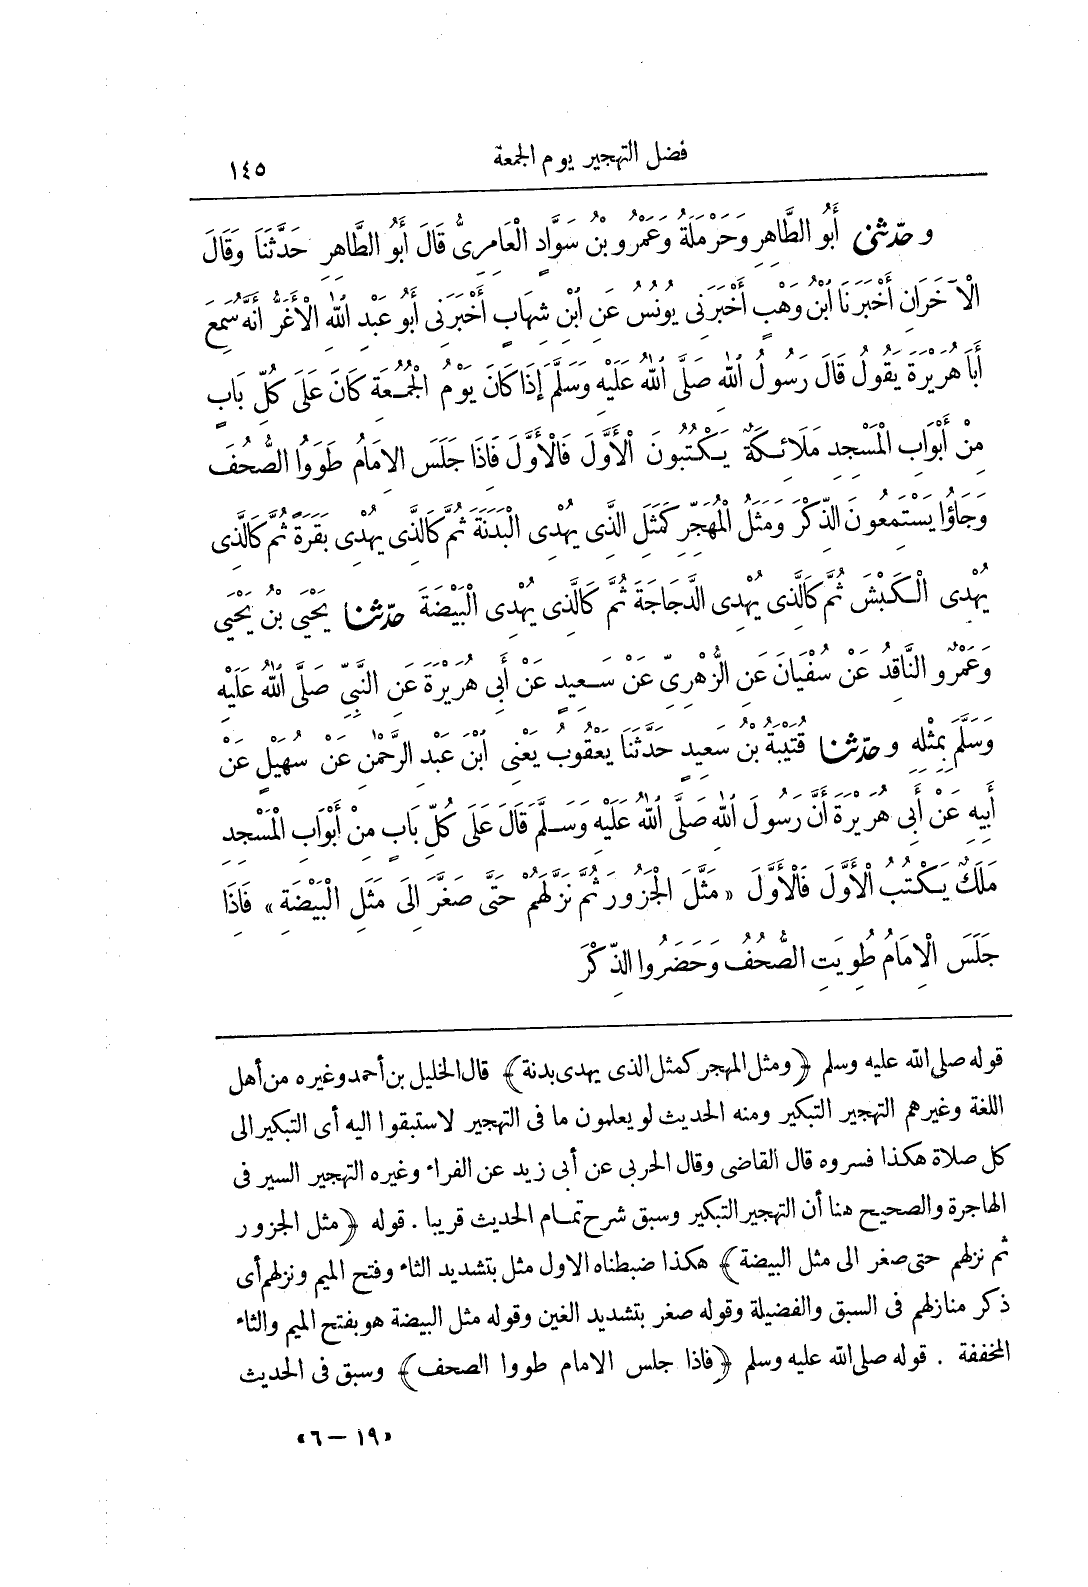 فضل التهجير يوم الجمعة
١٤٥
و حدّثنى أَبُو الطَّاهِرِ وَحَرْمَلَةُ وَعَمْرُو بْنُ سَوَّادٍ الْعَامِرِىُّ قَالَ أَبُو الطَّاهِرِ حَدَّثَنَا وَقَالَ
الْآخَرَانِ أَخْبَرَنَا ابْنُ وَهْبٍ أَخْبَرَنِى يُونُسُ عَنِ ابْنِ شِهَابٍ أَخْبَرَنِى أَبُو عَبْدِ اللهِ الْأَغَرُّ أَنَّهُ سَمِعَ
أَبَا هُرَيْرَةَ يَقُولُ قَالَ رَسُولُ اللهِ صَلَّى اللهُ عَلَيْهِ وَسَلَّمَ إِذَا كَانَ يَوْمُ الْجُمُعَةِ كَانَ عَلَى كُلِّ بَابٍ
مِنْ أَبْوَابِ الْمَسْجِدِ مَلَائِكَةٌ يَكْتُبُونَ الْأَوَّلَ فَالْأَوَّلَ فَاذَا جَلَسَ الامَامُ طَوَوُا الصُّحُفَ
وَجَاؤُا يَسْتَمِعُونَ الذِّكْرَ وَمَثَلُ الْمُهَجِّرِ كَمَثَلِ الَّذِى يُهْدِى الْبَدَنَةَ ثُمَّ كَالَّذِى يُهْدِى بَقَرَةً ثُمَّ كَالَّذِى
يُهْدِى الْكَبْشَ ثُمَّ كَالَّذِى يُهْدِى الدَّجَاجَةَ ثُمَّ كَالَّذِى يُهْدِى الْبَيْضَةَ حدّثنا يَحْيَى بْنُ يَحْيَى
وَعَمْرٌو النَّاقِدُ عَنْ سُفْيَانَ عَنِ الزُّهْرِىِّ عَنْ سَعِيدٍ عَنْ أَبِى هُرَيْرَةَ عَنِ النَّبِىِّ صَلَّى اللهُ عَلَيْهِ
وَسَلَّمَ بِمِثْلِهِ و حدّثنا قُتَيْبَةُ بْنُ سَعِيدٍ حَدَّثَنَا يَعْقُوبُ يَعْنِى ابْنَ عَبْدِ الرَّحْمٰنِ عَنْ سُهَيْلٍ عَنْ
أَبِيهِ عَنْ أَبِى هُرَيْرَةَ أَنَّ رَسُولَ اللهِ صَلَّى اللهُ عَلَيْهِ وَسَلَّمَ قَالَ عَلَى كُلِّ بَابٍ مِنْ أَبْوَابِ الْمَسْجِدِ
مَلَكٌ يَكْتُبُ الْأَوَّلَ فَالْأَوَّلَ «مَثَّلَ الْجَزُورَ ثُمَّ نَزَّلَهُمْ حَتَّى صَغَّرَ إِلَى مَثَلِ الْبَيْضَةِ» فَاذَا
جَلَسَ الْامَامُ طُوِيَتِ الصُّحُفُ وَحَضَرُوا الذِّكْرَ
قوله صلى الله عليه وسلم ﴿ومثل المهجر كمثل الذى يهدى بدنة﴾ قال الخليل بن أحمد وغيره من أهل
اللغة وغيرهم التهجير التبكير ومنه الحديث لو يعلمون ما فى التهجير لاستبقوا اليه أى التبكير الى
كل صلاة هكذا فسروه قال القاضى وقال الحربى عن أبى زيد عن الفراء وغيره التهجير السير فى
الهاجرة والصحيح هنا أن التهجير التبكير وسبق شرح تمام الحديث قريبا . قوله ﴿مثل الجزور
ثم نزلهم حتى صغر الى مثل البيضة﴾ هكذا ضبطناه الاول مثل بتشديد الثاء وفتح الميم ونزلهم أى
ذكر منازلهم فى السبق والفضيلة وقوله صغر بتشديد الغين وقوله مثل البيضة هو بفتح الميم والثاء
المخففة . قوله صلى الله عليه وسلم ﴿فاذا جلس الامام طووا الصحف﴾ وسبق فى الحديث
«١٩ – ٦»